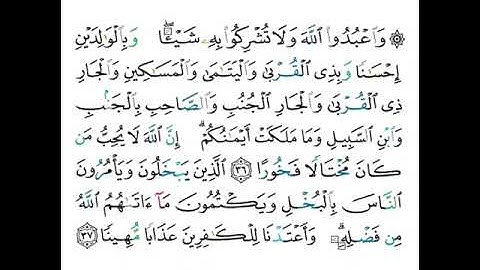 ۞ وَٱعۡبُدُواْ ٱللَّهَ وَلَا تُشۡرِكُواْ بِهِۦ شَيۡـٔٗاۖ وَبِٱلۡوَٰلِدَيۡنِ
إِحۡسَٰنٗا وَبِذِي ٱلۡقُرۡبَىٰ وَٱلۡيَتَٰمَىٰ وَٱلۡمَسَٰكِينِ وَٱلۡجَارِ
ذِي ٱلۡقُرۡبَىٰ وَٱلۡجَارِ ٱلۡجُنُبِ وَٱلصَّاحِبِ بِٱلۡجَنۢبِ
وَٱبۡنِ ٱلسَّبِيلِ وَمَا مَلَكَتۡ أَيۡمَٰنُكُمۡۗ إِنَّ ٱللَّهَ لَا يُحِبُّ مَن
كَانَ مُخۡتَالٗا فَخُورًا ٣٦ ٱلَّذِينَ يَبۡخَلُونَ وَيَأۡمُرُونَ
ٱلنَّاسَ بِٱلۡبُخۡلِ وَيَكۡتُمُونَ مَآ ءَاتَىٰهُمُ ٱللَّهُ
مِن فَضۡلِهِۦۗ وَأَعۡتَدۡنَا لِلۡكَٰفِرِينَ عَذَابٗا مُّهِينٗا ٣٧